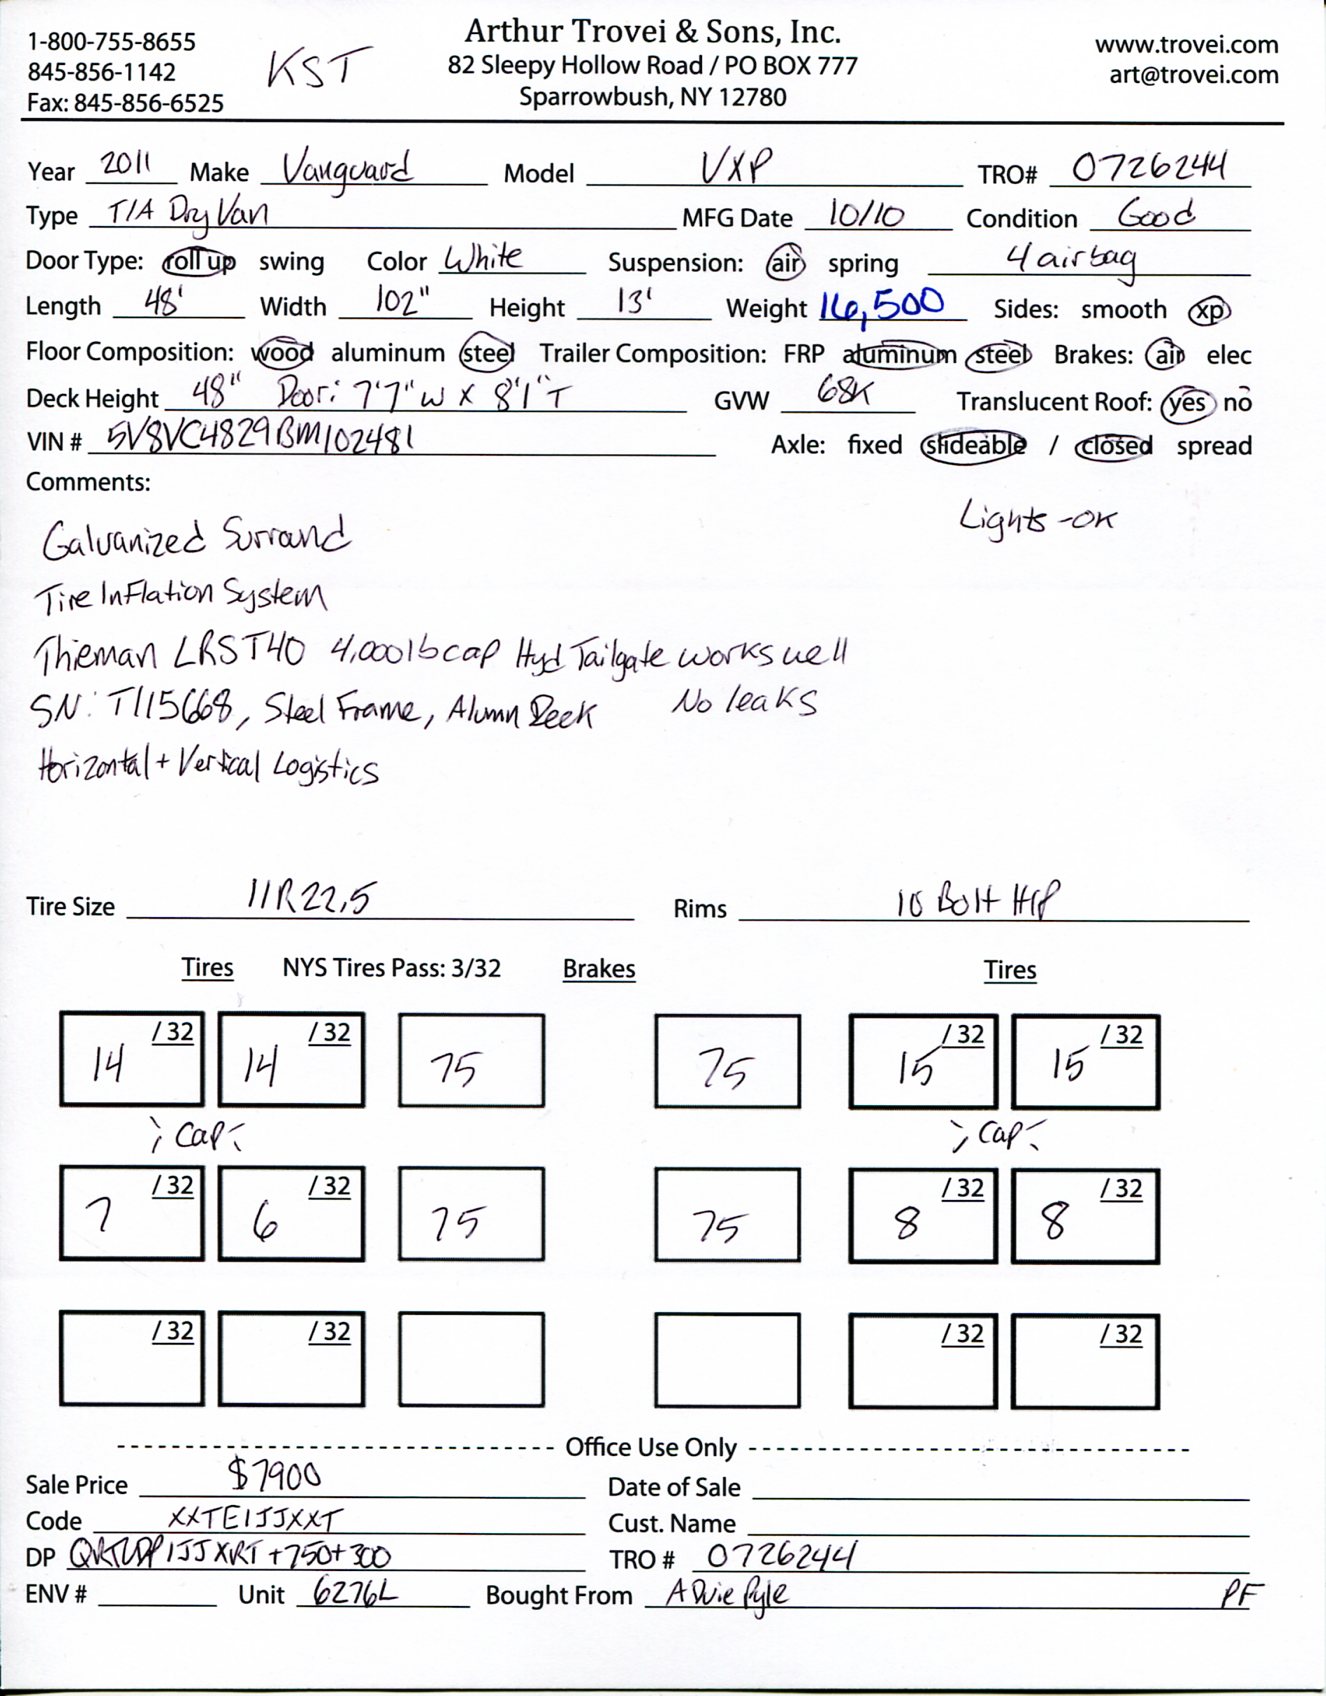 1-800-755-8655
845-856-1142
Fax: 845-856-6525
KST
Arthur Trovei & Sons, Inc.
82 Sleepy Hollow Road / PO BOX 777
Sparrowbush, NY 12780
www.trovei.com
art@trovei.com
Year 2011 Make Vanguard Model VXP TRO# 0726244
Type T/A Dry Van MFG Date 10/10 Condition Good
Door Type: roll up swing Color White Suspension: air spring 4 airbag
Length 48' Width 102" Height 13' Weight 16,500 Sides: smooth xp
Floor Composition: wood aluminum steel Trailer Composition: FRP aluminum steel Brakes: air elec
Deck Height 48" Door: 7'7"W X 8'1"T GVW 68K Translucent Roof: yes no
VIN # 5V8VC4829BM102481 Axle: fixed slideable / closed spread
Comments:
Lights -OK
Galvanized Surround
Tire Inflation System
Thieman LRST40 4,000lb cap Hyd Tailgate works well
SN: T115668, Steel Frame, Alumn Deck No leaks
Horizontal + Vertical Logistics
Tire Size 11R22.5 Rims 10 Bolt HP
Tires NYS Tires Pass: 3/32 Brakes Tires
14 /32 14 /32 75 75 15 /32 15 /32
Cap Cap
7 /32 6 /32 75 75 8 /32 8 /32
/32 /32 /32 /32
Office Use Only
Sale Price $7900 Date of Sale
Code XXTEIJJXXT Cust. Name
DP +750+300 TRO # 0726244
ENV # Unit 6276L Bought From A Duie Pyle PF